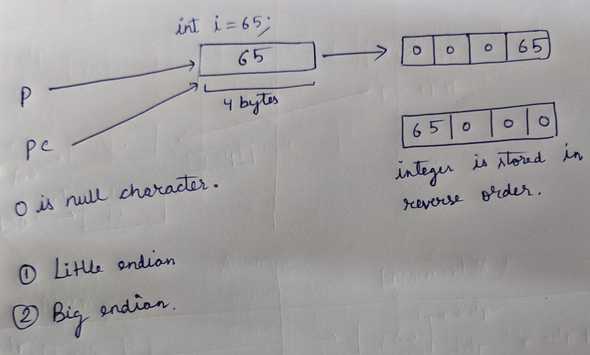 int i = 65;
65
0 0 0 65
4 bytes
P
PC
65 0 0 0
integer is stored in
reverse order.
0 is null character.
① Little endian
② Big endian.